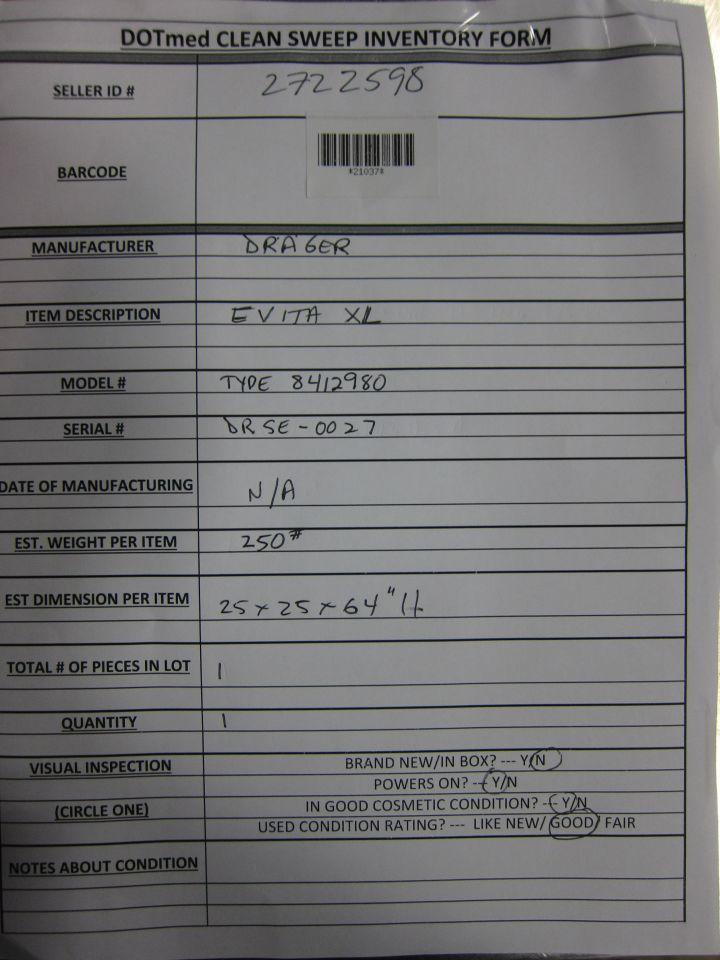 DOTmed CLEAN SWEEP INVENTORY FORM
SELLER ID # 2722598
BARCODE
*21037*
MANUFACTURER DRAGER
ITEM DESCRIPTION EVITA XL
MODEL # TYPE 8412980
SERIAL # DRSE-0027
DATE OF MANUFACTURING N/A
EST. WEIGHT PER ITEM 250#
EST DIMENSION PER ITEM 25 x 25 x 64" H
TOTAL # OF PIECES IN LOT 1
QUANTITY 1
VISUAL INSPECTION BRAND NEW/IN BOX? --- Y/N
POWERS ON? --- Y/N
(CIRCLE ONE) IN GOOD COSMETIC CONDITION? --- Y/N
USED CONDITION RATING? --- LIKE NEW/ GOOD/ FAIR
NOTES ABOUT CONDITION